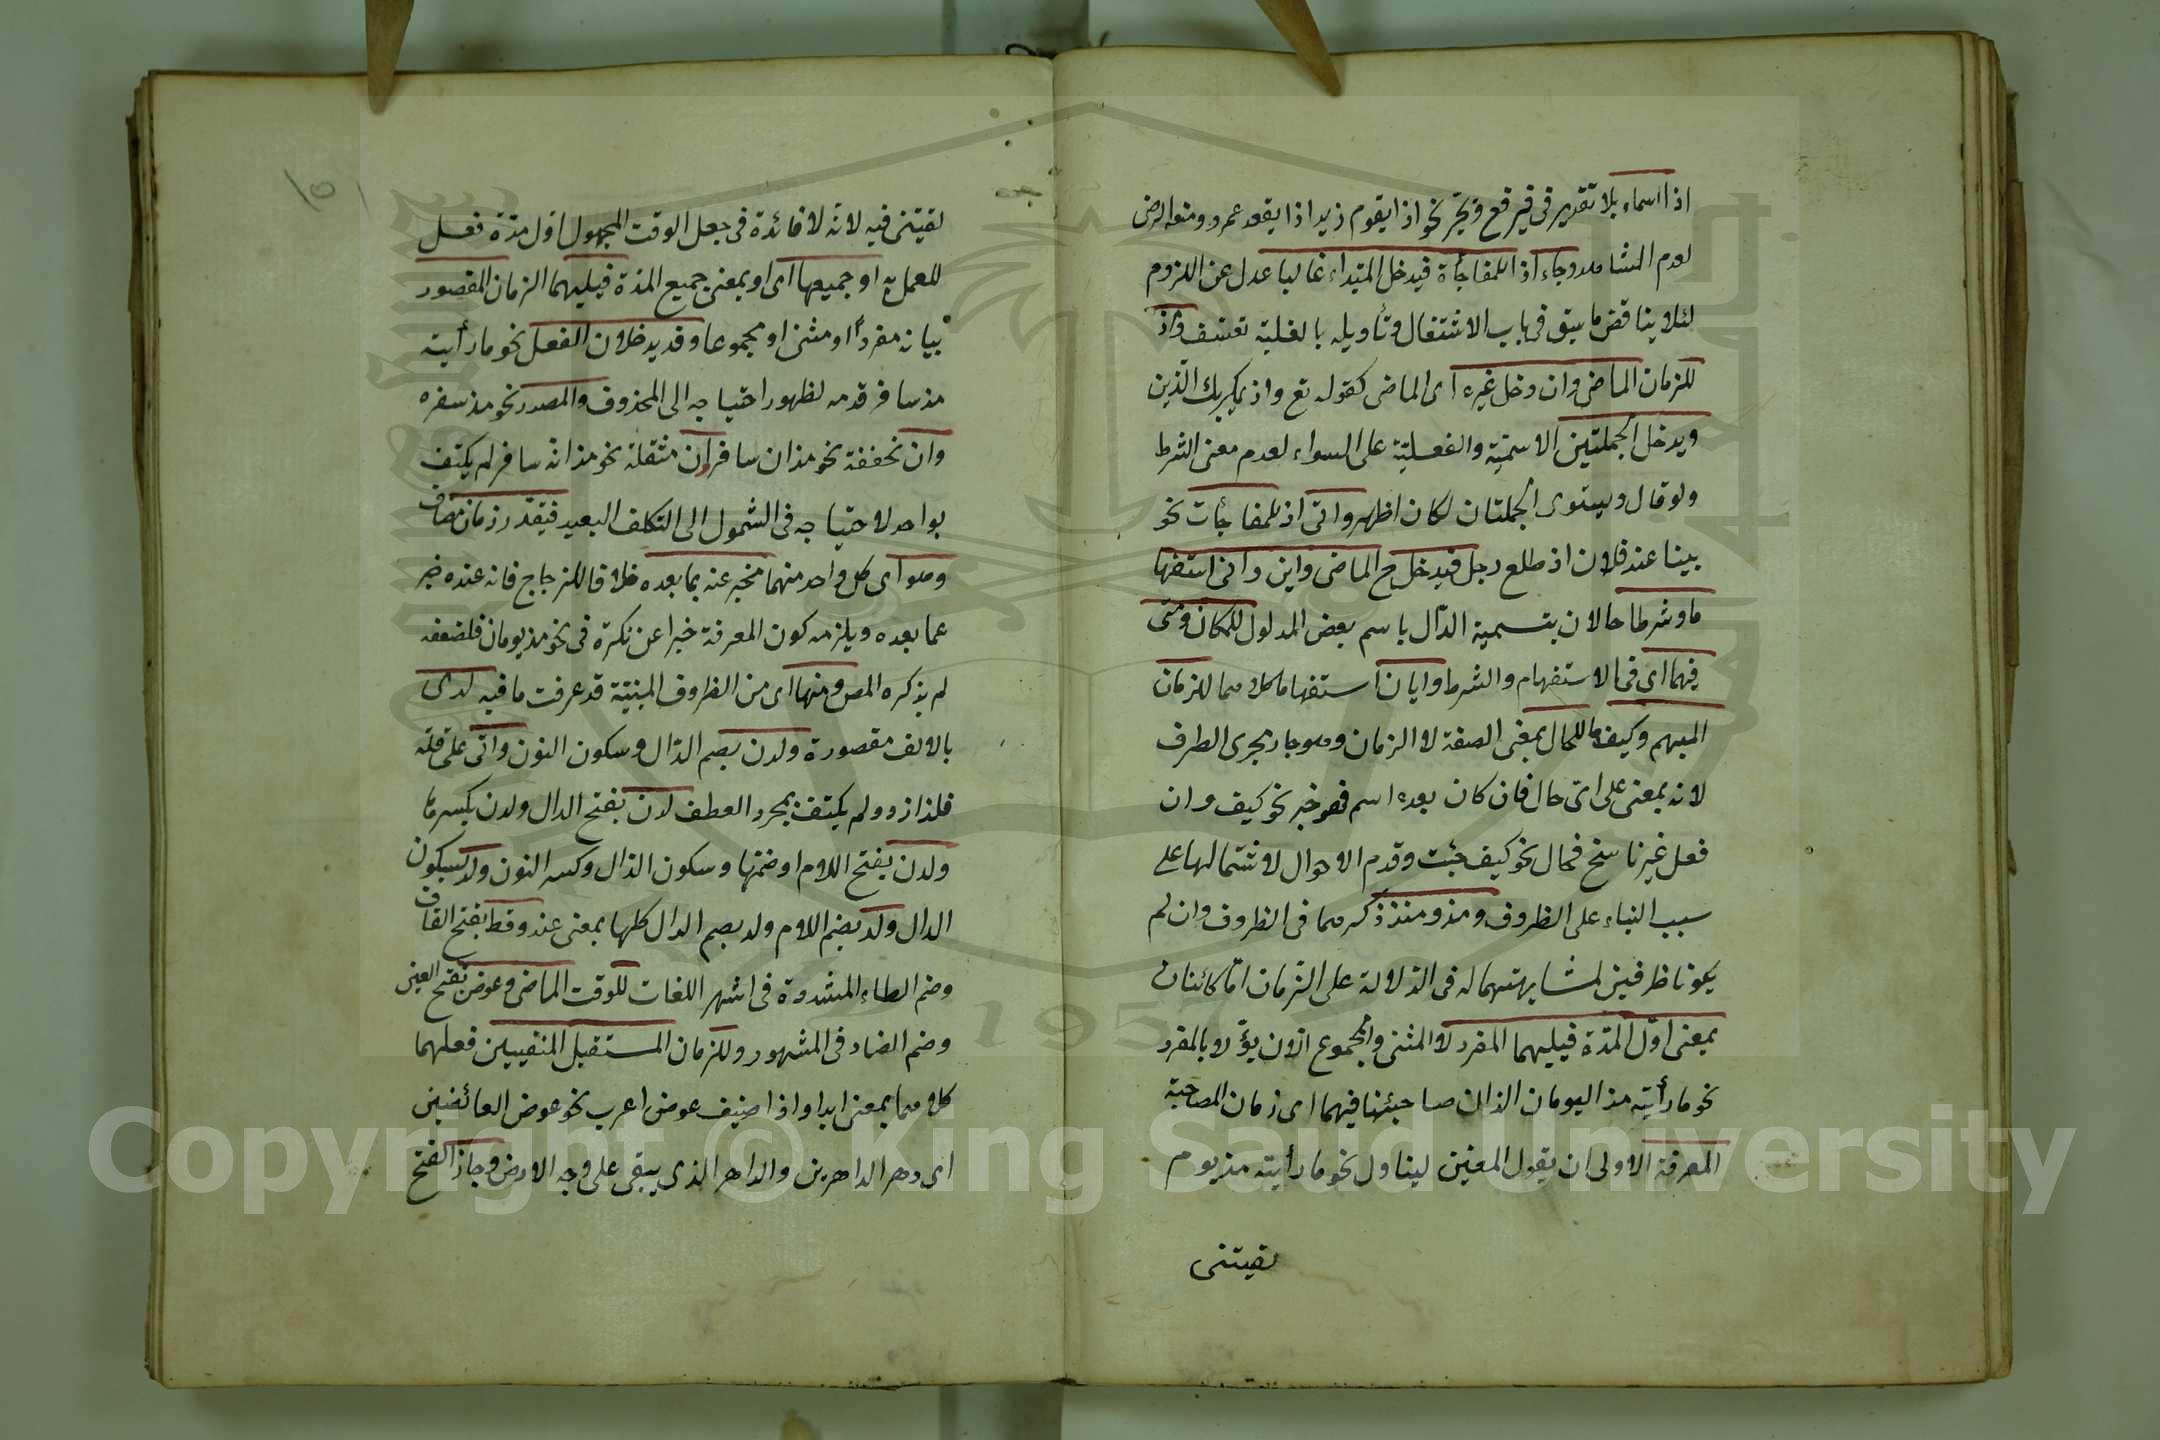 اذا اسماء بلا تقدير في فيرفع ويجر نحو اذا يقوم زيد اذا يقعد عمرو ومنعه الرضى
لعدم الشاهد وجاء اذا للمفاجأة فيدخل المبتداء غالبا عدل عن اللزوم
لئلا يناقض ما سبق في باب الاشتغال وتأويله بالغلبة تعسف واذ
للزمان الماضى وان دخل غيره اى الماضى كقوله تع واذ يمكر بك الذين
ويدخل الجملتين الاسمية والفعلية على السواء لعدم معنى الشرط
ولو قال ويستوى الجملتان لكان اظهر واتى اذ للمفاجأت نحو
بينا عند فلان اذ طلع رجل فيدخل ح الماضى واين وانى استفها
ما وشرطا حالان بتسمية الدّال باسم بعض المدلول للمكان ومتى
فيهما اى في الاستفهام والشرط وايان استفهاما كلاهما للزمان
المبهم وكيف ما للحال بمعنى الصفة لا الزمان وهو جار مجرى الظرف
لانه بمعنى على اى حال فان كان بعده اسم فهو خبر نحو كيف وان
فعل غير ناسخ فحال نحو كيف جئت وقدم الاحوال لاشتمالها على
سبب البناء على الظروف ومذ ومنذ ذكرهما في الظروف وان لم
يكونا ظرفين لمشابهتهما له في الدلالة على الزمان اما كائنان
بمعنى اوّل المدّة فيليهما المفرد لا المثنى والمجموع الّا ان يؤّلا بالمفرد
نحو ما رأيته مذ اليومان الذان صاحبتنا فيهما اى زمان المصاحبة
المعرفة الاولى ان يقول المعين ليناول نحو ما رأيته مذ يوم
لقيتنى
لقيتنى فيه لانه لا فائدة في جعل الوقت المجهول اوّل مدّة فعل
للعمل به او جميعها اى او بمعنى جميع المدّة فيليهما الزمان المقصور
بيانه مفردًا او مثنى او مجموعا وقد يدخلان الفعل نحو ما رأيته
مذ سافر قدمه لظهور احتياجه الى المحذوف والمصدر نحو مذ سفره
وان مخففة نحو مذ ان سافر وان مثقلة نحو مذ انه سافر لم يكتف
بواحد لاحتياجه في الشمول الى التكلف البعيد فيقدّر زمان مضاف
وهو اى كل واحد منهما مخبر عنه بما بعده خلافا للزجاج فانه عنده خبر
عما بعده ويلزمه كون المعرفة خبرا عن نكرة في نحو مذ يومان فلضعفه
لم يذكره المص ومنها اى من الظروف المبنيّة قد عرفت ما فيه لدى
بالالف مقصورة ولدن بضم الدّال وسكون النون واتى على قلّة
فلذا زد ولم يكتف بمجرد العطف لدن بفتح الدال ولدن بكسرها
ولدن بفتح اللام او ضمّها وسكون الدال وكسر النون ولد بسكون
الدال ولد بضم اللام ولد بضم الدال كلها بمعنى عند وقط بفتح القاف
وضم الطاء المشددة في اشهر اللغات للوقت الماضى وعوض بفتح العين
وضم الضاد في المشهور وللزمان المستقبل المنفيين فعلهما
كلاهما بمعنى ابدا واذا اضيف عوض اعرب نحو عوض العائضين
اى دهر الداهرين والداهر الذى يبقى على وجه الارض وجاز الفتح
١٥١
Copyright © King Saud University
1957